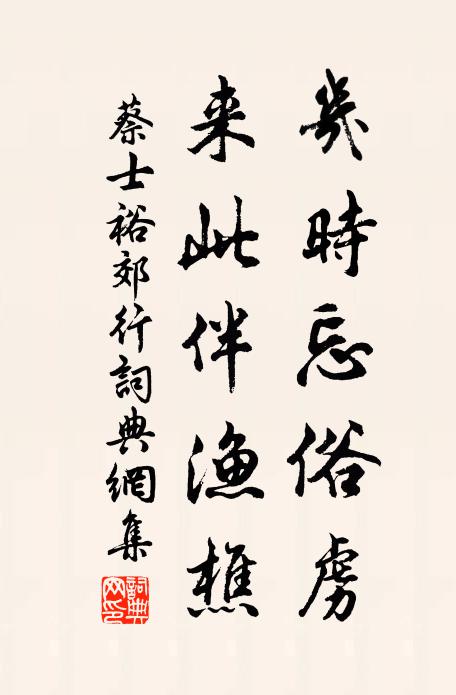 幾時忘俗虜
来此伴漁樵
蔡士裕郊行詞典網集
詞典
网印